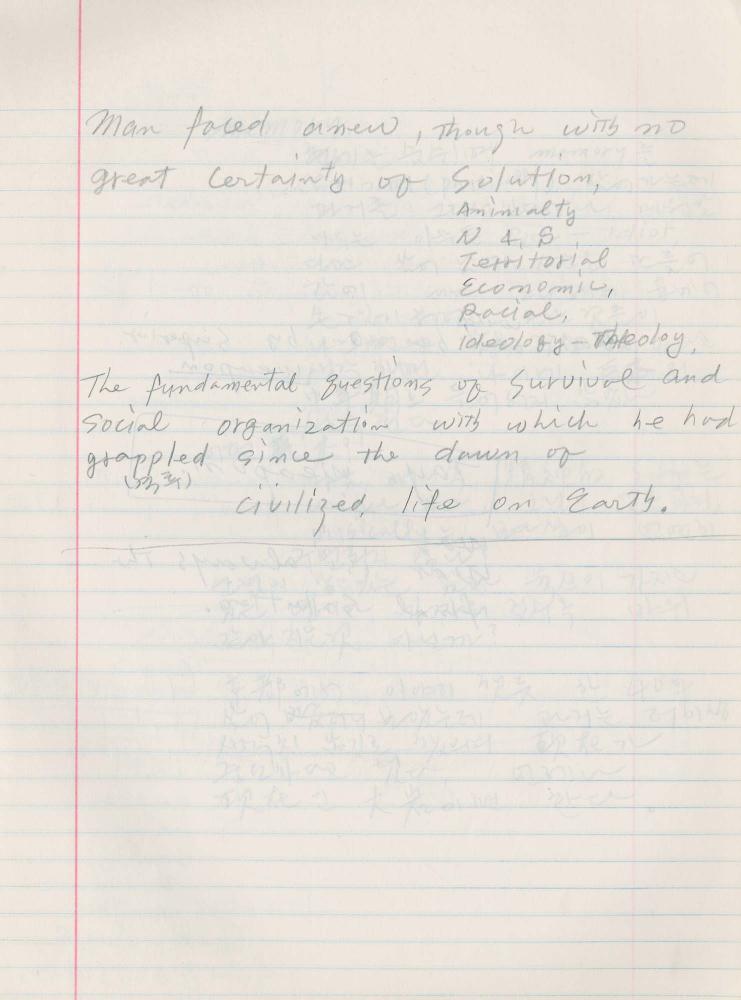 Man faced anew, though with no
great certainty of Solution,
Animalty
N & S
Territorial
Economic,
Racial,
ideology - Theology,
The fundamental questions of Survival and
Social organization with which he had
grappled since the dawn of
civilized, life on Earth.